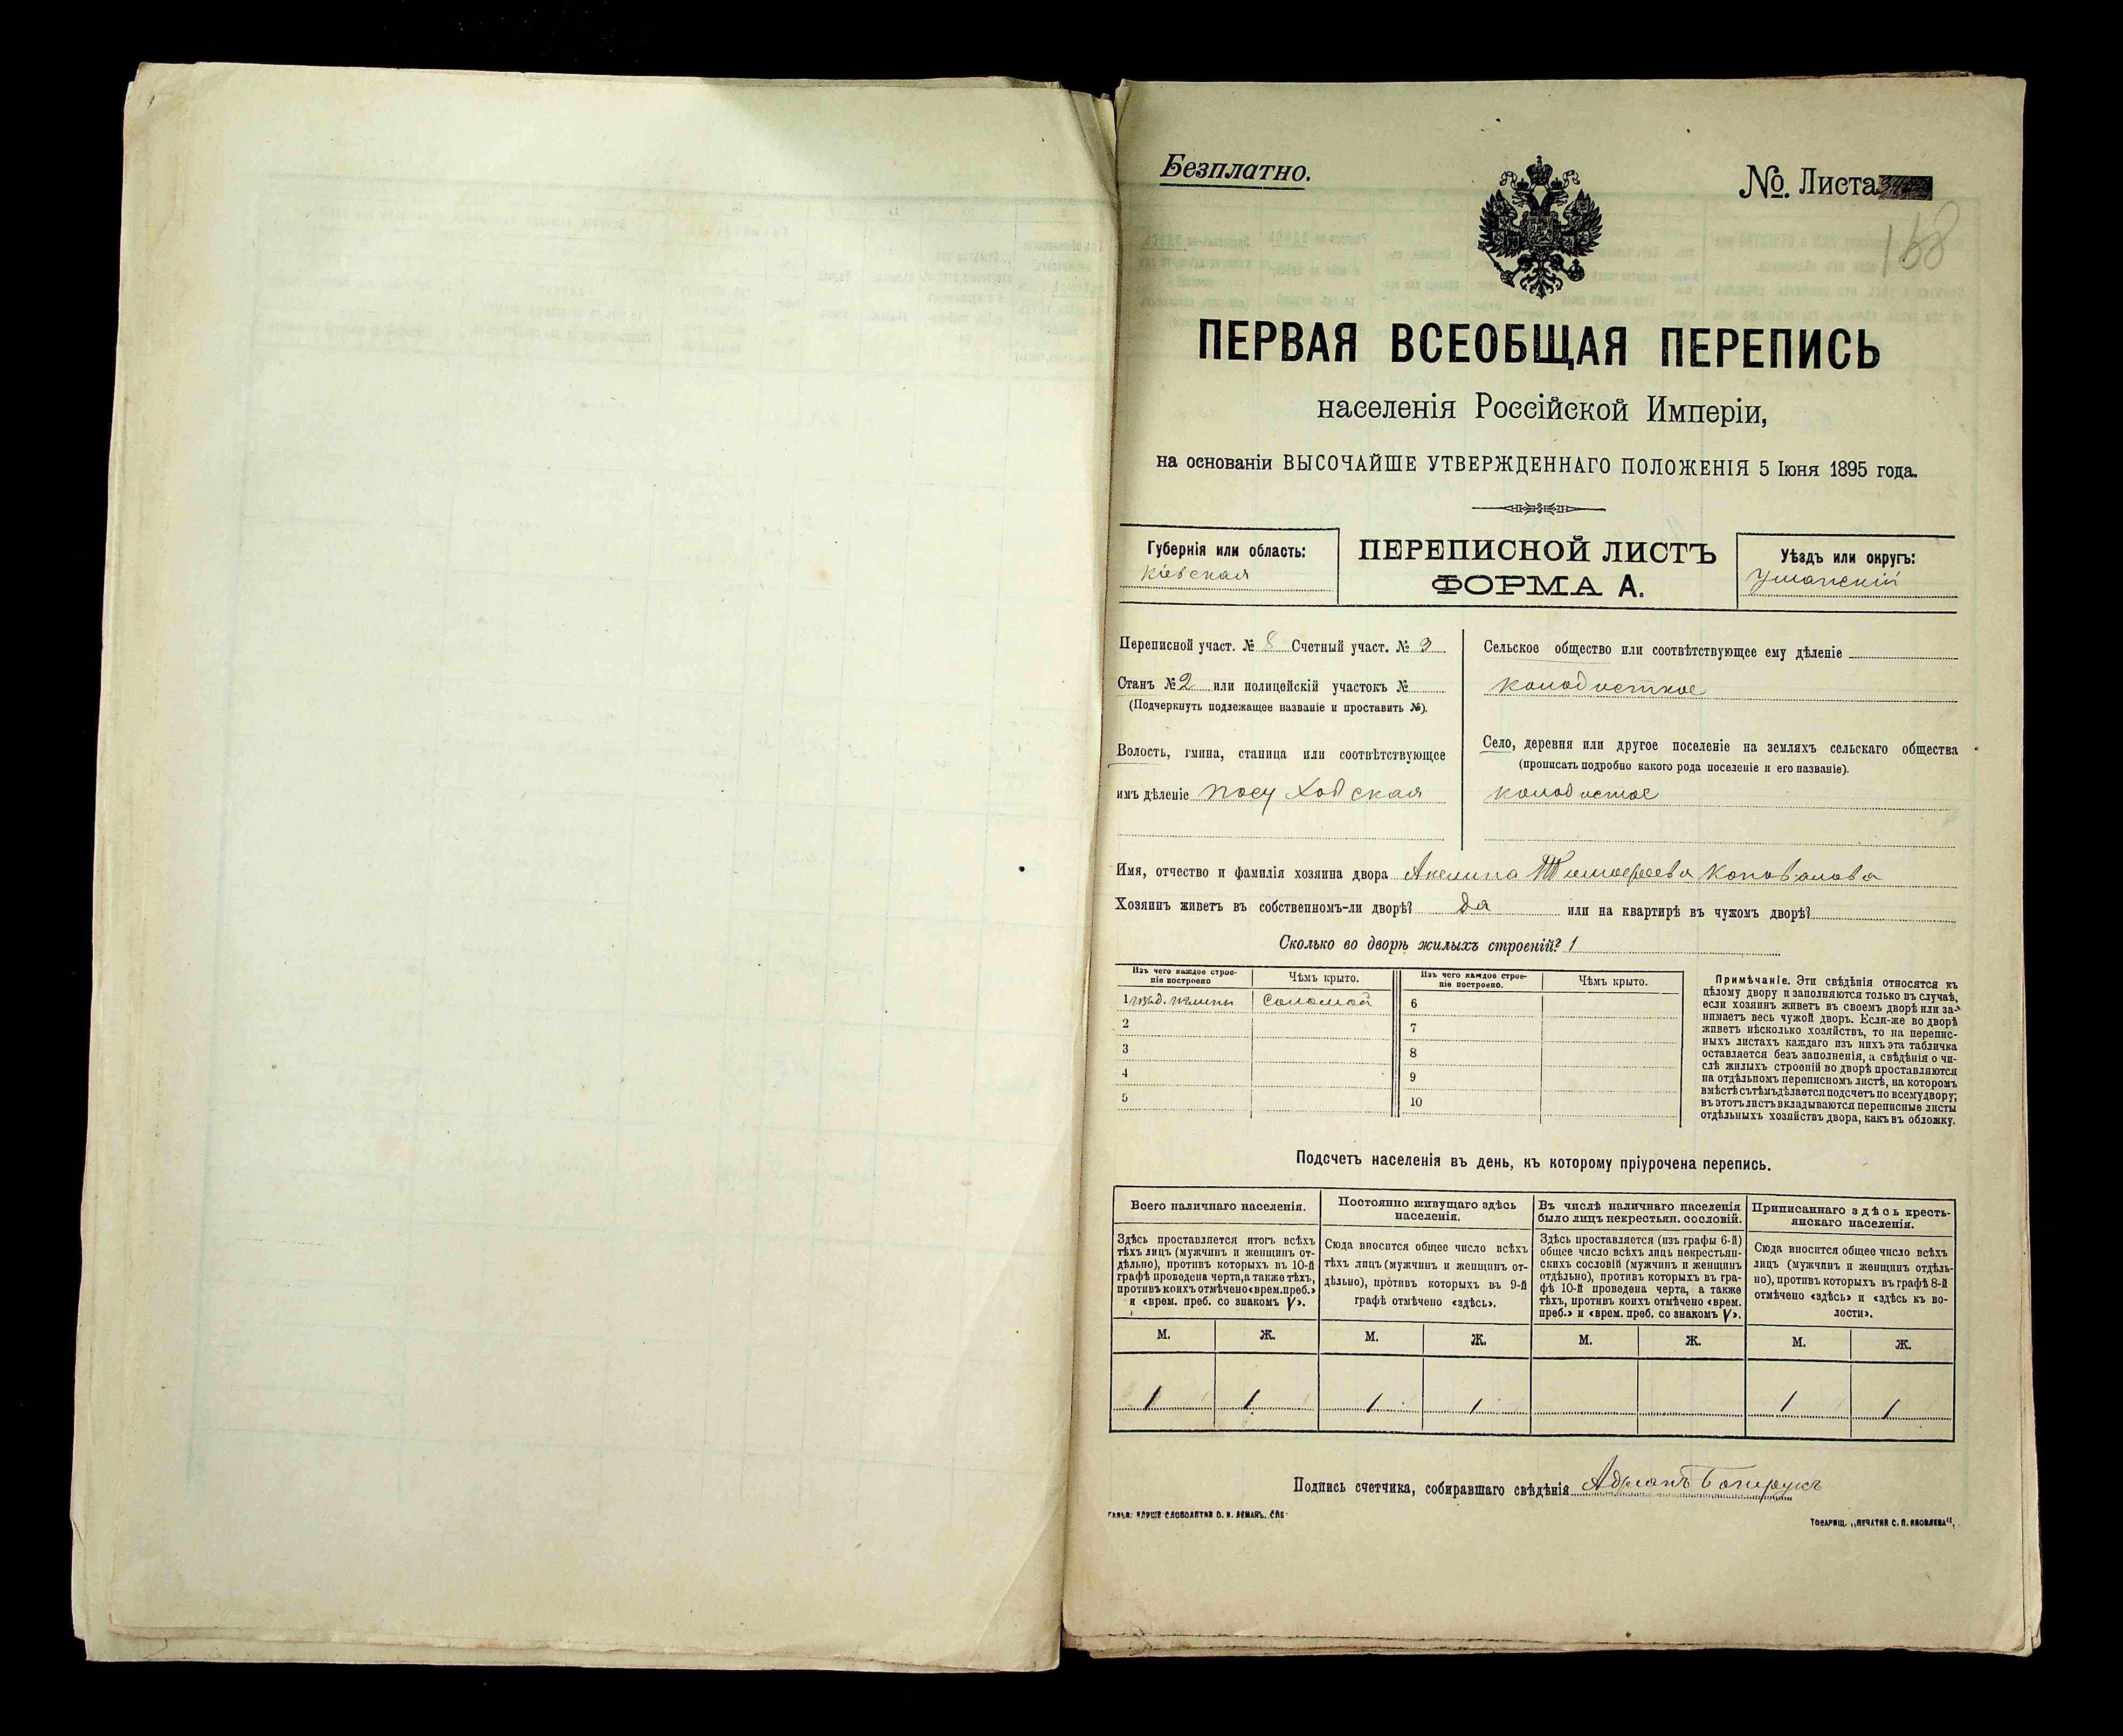 Безплатно.
№. Листа
168
ПЕРВАЯ ВСЕОБЩАЯ ПЕРЕПИСЬ
населенія Россійской Имперіи,
на основаніи ВЫСОЧАЙШЕ УТВЕРЖДЕННАГО ПОЛОЖЕНІЯ 5 Іюня 1895 года.
Губернія или область:
Кіевская
ПЕРЕПИСНОЙ ЛИСТЪ
ФОРМА А.
Уѣздъ или округъ:
Уманскій
Переписной участ. № 8 Счетный участ. № 3
Станъ № 2 или полицейскій участокъ №
(Подчеркнуть подлежащее названіе и проставить №).
Волость, гмина, станица или соотвѣтствующее
имъ дѣленіе Посуховская
Сельское общество или соотвѣтствующее ему дѣленіе
Колодисткое
Село, деревня или другое поселеніе на земляхъ сельскаго общества
(прописать подробно какого рода поселеніе и его названіе).
Колодистое
Имя, отчество и фамилія хозяина двора Акелина Тимофеева Коновалова
Хозяинъ живетъ въ собственномъ-ли дворѣ? да или на квартирѣ въ чужомъ дворѣ?
Сколько во дворѣ жилыхъ строеній? 1
Изъ чего каждое строе-
ніе построено
Чѣмъ крыто.
Изъ чего каждое строе-
ніе построено.
Чѣмъ крыто.
1 изъ д. глины Соломой
2
3
4
5
6
7
8
9
10
Примѣчаніе. Эти свѣдѣнія относятся къ
цѣлому двору и заполняются только въ случаѣ,
если хозяинъ живетъ въ своемъ дворѣ или за-
нимаетъ весь чужой дворъ. Если-же во дворѣ
живетъ нѣсколько хозяйствъ, то на перепис-
ныхъ листахъ каждаго изъ нихъ эта табличка
оставляется безъ заполненія, а свѣдѣнія о чи-
слѣ жилыхъ строеній во дворѣ проставляются
на отдѣльномъ переписномъ листѣ, на которомъ
вмѣстѣ съ тѣмъ дѣлается подсчетъ по всему двору;
въ этотъ листъ вкладываются переписные листы
отдѣльныхъ хозяйствъ двора, какъ въ обложку.
Подсчетъ населенія въ день, къ которому пріурочена перепись.
Всего наличнаго населенія.
Здѣсь проставляется итогъ всѣхъ
тѣхъ лицъ (мужчинъ и женщинъ от-
дѣльно), противъ которыхъ въ 10-й
графѣ проведена черта, а также тѣхъ,
противъ коихъ отмѣчено «врем. преб.»
и «врем. преб. со знакомъ V».
Постоянно живущаго здѣсь
населенія.
Сюда вносится общее число всѣхъ
тѣхъ лицъ (мужчинъ и женщинъ от-
дѣльно), противъ которыхъ въ 9-й
графѣ отмѣчено «здѣсь».
Въ числѣ наличнаго населенія
было лицъ некрестьян. сословій.
Здѣсь проставляется (изъ графы 6-й)
общее число всѣхъ лицъ некрестьян-
скихъ сословій (мужчинъ и женщинъ
отдѣльно), противъ которыхъ въ гра-
фѣ 10-й проведена черта, а также
тѣхъ, противъ коихъ отмѣчено «врем.
преб.» и «врем. преб. со знакомъ V».
Приписаннаго здѣсь кресть-
янскаго населенія.
Сюда вносится общее число всѣхъ
лицъ (мужчинъ и женщинъ отдѣль-
но), противъ которыхъ въ графѣ 8-й
отмѣчено «здѣсь» и «здѣсь къ во-
лости».
М. Ж. М. Ж. М. Ж. М. Ж.
1 1 1 1 1 1
Подпись счетчика, собиравшаго свѣдѣнія Адріанъ
ТОВАРИЩ. „ПЕЧАТНЯ С. П. ЯКОВЛЕВА“.